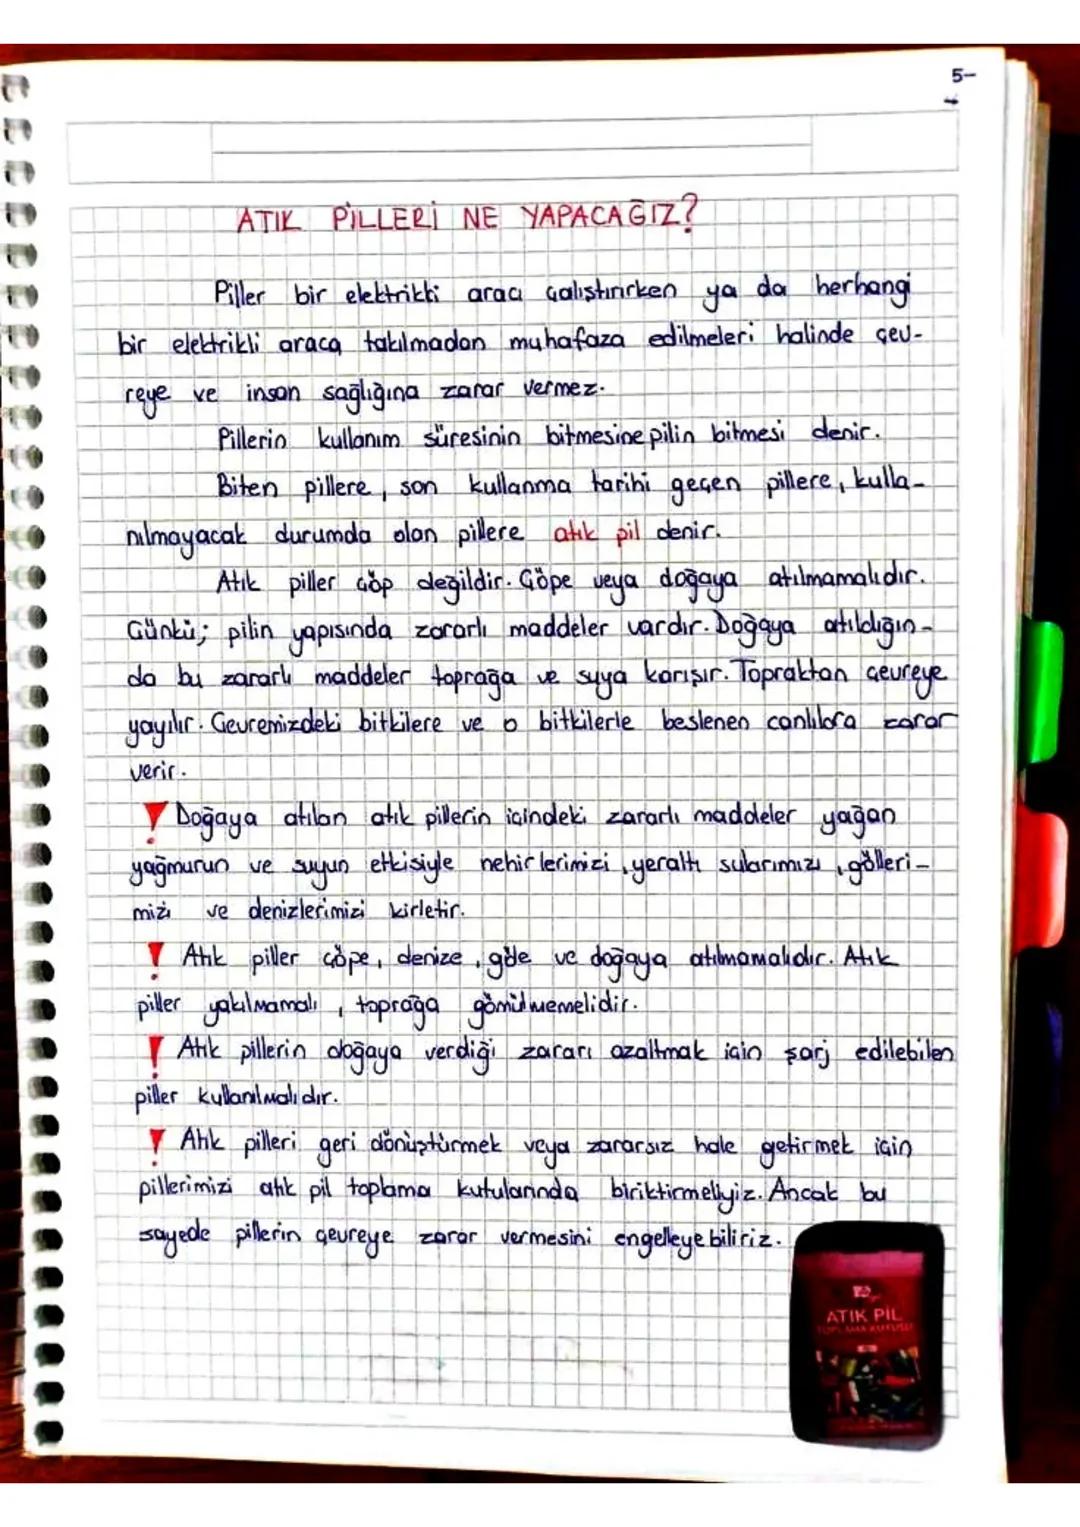 5-
ATIK PİLLERİ NE YAPACAĞIZ?
Piller bir elektrikli aracı çalıştırırken ya da herhangi
bir elektrikli araca takılmadan muhafaza edilmeleri halinde çev-
reye ve insan sağlığına zarar vermez.
Pillerin kullanım süresinin bitmesine pilin bitmesi denir.
Biten pillere, son kullanma tarihi geçen pillere, kulla-
nılmayacak durumda olan pillere atık pil denir.
Atık piller çöp değildir. Çöpe veya doğaya atılmamalıdır.
Çünkü; pilin yapısında zararlı maddeler vardır. Doğaya atıldığın-
da bu zararlı maddeler toprağa ve suya karışır. Topraktan çevreye
yayılır. Çevremizdeki bitkilere ve o bitkilerle beslenen canlılara zarar
verir.
! Doğaya atılan atık pillerin içindeki zararlı maddeler yağan
yağmurun ve suyun etkisiyle nehirlerimizi, yeraltı sularımızı, gölleri-
mizi ve denizlerimizi kirletir.
! Atık piller çöpe, denize, göle ve doğaya atılmamalıdır. Atık
piller yakılmamalı, toprağa gömülmemelidir.
! Atık pillerin doğaya verdiği zararı azaltmak için şarj edilebilen
piller kullanılmalıdır.
! Atık pilleri geri dönüştürmek veya zararsız hale getirmek için
pillerimizi atık pil toplama kutularında biriktirmeliyiz. Ancak bu
sayede pillerin çevreye zarar vermesini engelleyebiliriz.
ATIK PİL
TOPLAMA KUTUSU